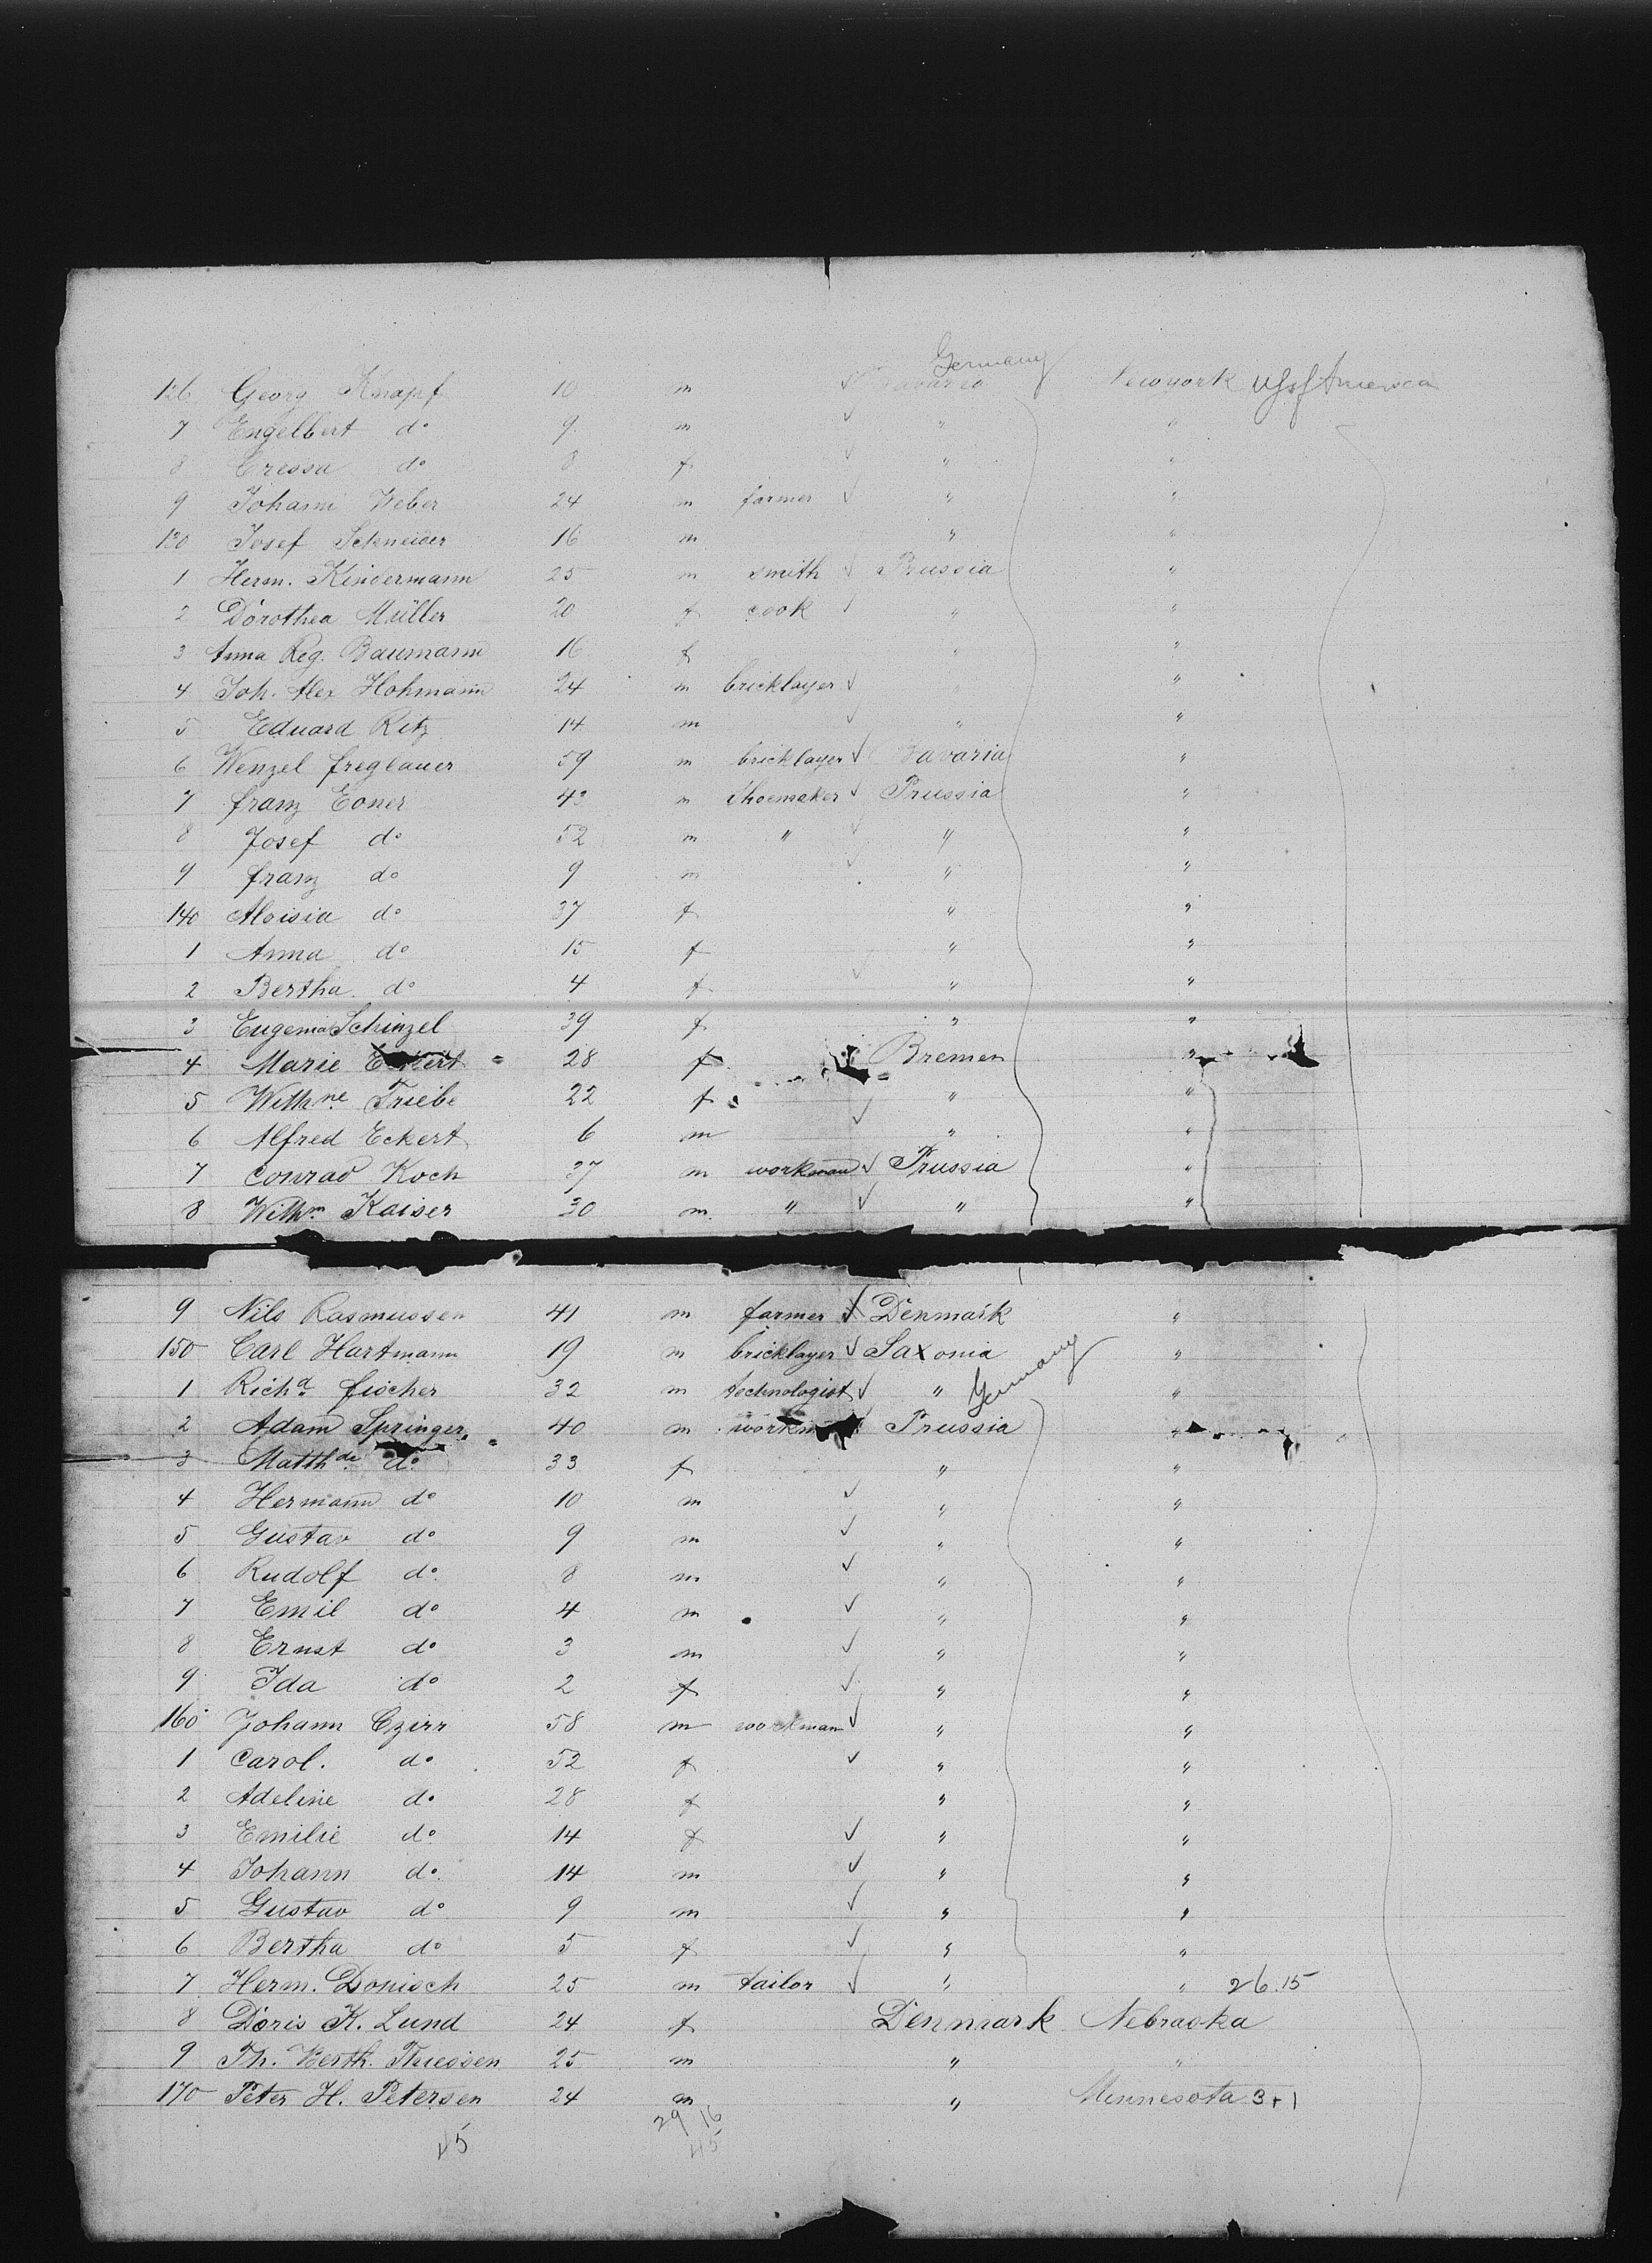 Germany
126 Georg Knapf 10 m ✓ Bavaria Newyork U.S. of America
7 Engelbert do 9 m ✓ " "
8 Cressa do 8 f ✓ " "
9 Johann Weber 24 m farmer ✓ " "
130 Josef Schneider 16 m " "
1 Herm. Kindermann 25 m smith ✓ Prussia "
2 Dorothea Müller 20 f cook ✓ " "
3 Anna Reg. Baumann 16 f " "
4 Joh. Alex Hohmann 24 m bricklayer ✓ " "
5 Eduard Ritz 14 m ✓ " "
6 Wenzel Freglauer 59 m bricklayer ✓ Bavaria "
7 Franz Exner 43 m shoemaker ✓ Prussia "
8 Josef do 52 m " ✓ " "
9 Franz do 9 m ✓ " "
140 Aloisia do 37 f " "
1 Anna do 15 f " "
2 Bertha do 4 f ✓ " "
3 Eugenia Schinzel 39 f " "
4 Marie Eckert 28 f Bremen "
5 Wilhne Triebe 22 f ✓ " "
6 Alfred Eckert 6 m " "
7 Conrad Koch 37 m workman ✓ Prussia "
8 Wilhm Kaiser 30 m " ✓ " "
9 Nils Rasmussen 41 m farmer ✓ Denmark "
150 Carl Hartmann 19 m bricklayer ✓ Saxonia "
1 Richd Fischer 32 m technologist ✓ " Germany "
2 Adam Springer 40 m workm Prussia "
3 Matthde do 33 f " "
4 Hermann do 10 m ✓ " "
5 Gustav do 9 m ✓ " "
6 Rudolf do 8 m ✓ " "
7 Emil do 4 m ✓ " "
8 Ernst do 3 m ✓ " "
9 Ida do 2 f ✓ " "
160 Johann Czirr 58 m workman ✓ " "
1 Carol. do 52 f ✓ " "
2 Adeline do 28 f " "
3 Emilie do 14 f ✓ " "
4 Johann do 14 m ✓ " "
5 Gustav do 9 m ✓ " "
6 Bertha do 5 f ✓ " "
7 Herm. Donisch 25 m tailor ✓ " " 26.15
8 Doris K. Lund 24 f Denmark Nebraska
9 Th. Berth. Thuessen 25 m " "
170 Peter H. Petersen 24 m " Minnesota 3+1
29 16
45 45